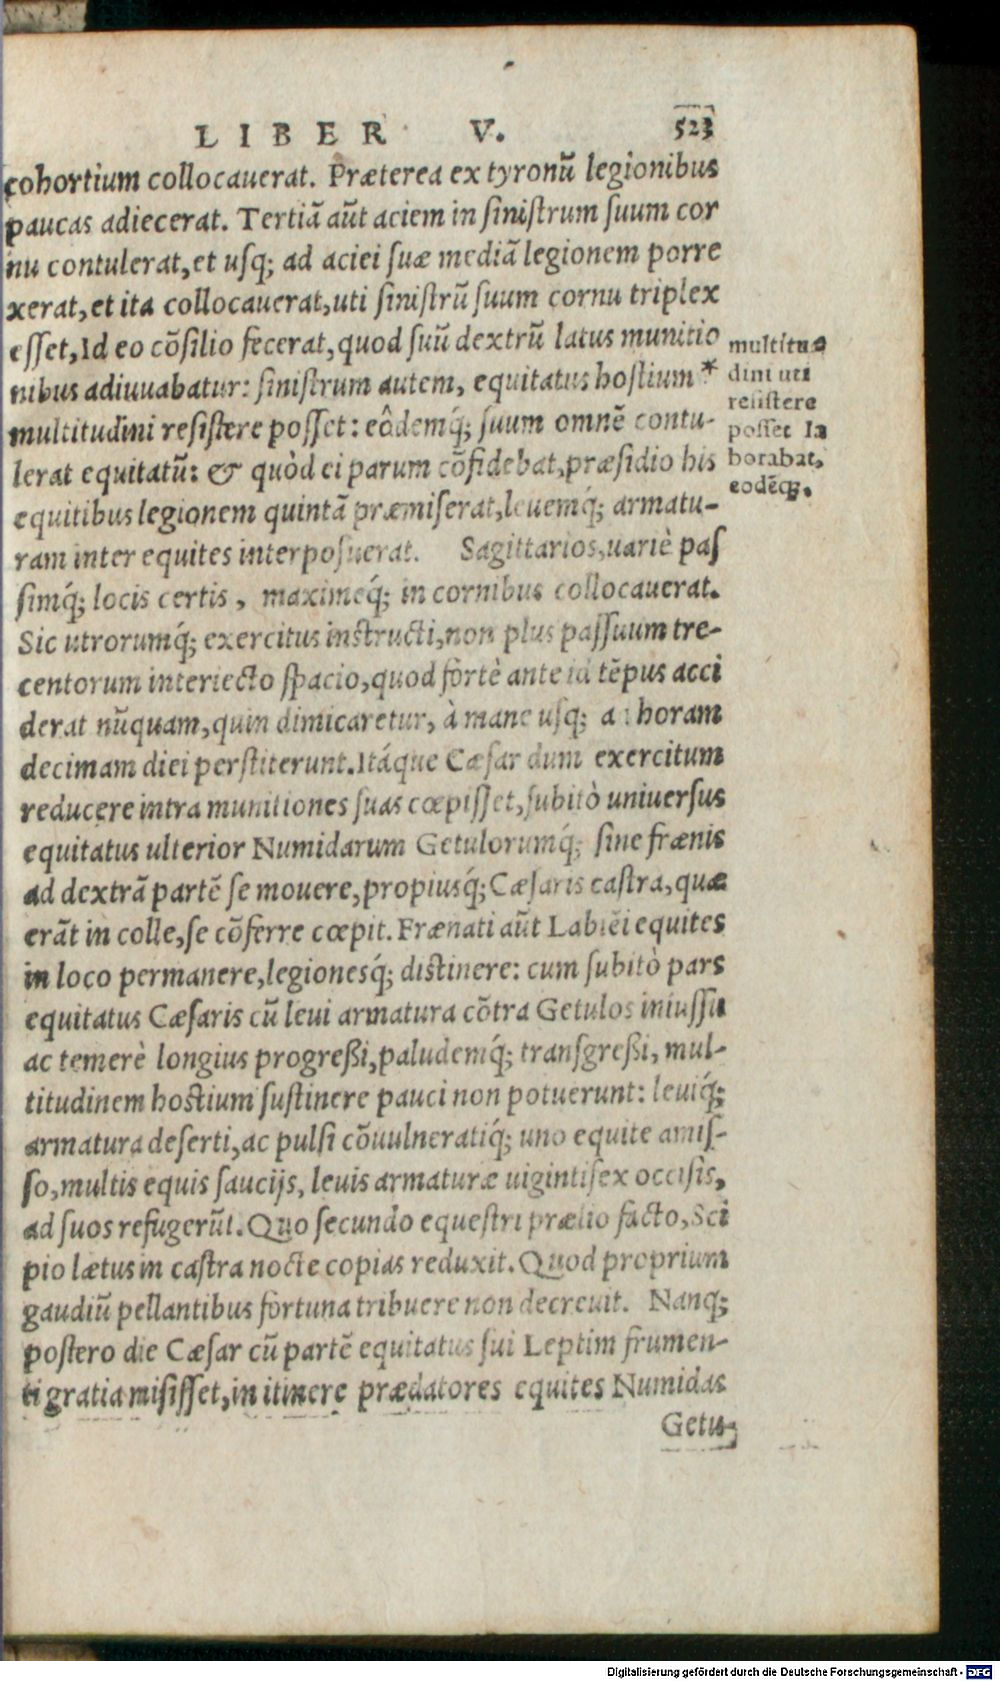 LIBER V. 523
cohortium collocauerat. Præterea ex tyronũ legionibus
paucas adiecerat. Tertiã aũt aciem in sinistrum suum cor
nu contulerat, et usq; ad aciei suæ mediã legionem porre
xerat, et ita collocauerat, uti sinistrũ suum cornu triplex
esset, Id eo cõsilio fecerat, quod suũ dextrũ latus munitio
nibus adiuuabatur: sinistrum autem, equitatus hostium *
multitudini resistere posset: eôdemq́; suum omnẽ contu-
lerat equitatũ: & quòd ei parum cõfidebat, præsidio his
equitibus legionem quintã præmiserat, leuemq́; armatu-
ram inter equites interposuerat. Sagittarios, uariè pas
simq́; locis certis, maximeq́; in cornibus collocauerat.
Sic utrorumq́; exercitus instructi, non plus passuum tre-
centorum interiecto spacio, quod fortè ante id tẽpus acci
derat nũquam, quin dimicaretur, à mane usq; a horam
decimam diei perstiterunt. Itáque Cæsar dum exercitum
reducere intra munitiones suas cœpisset, subitò uniuersus
equitatus ulterior Numidarum Getulorumq́; sine frænis
ad dextrã partẽ se mouere, propiusq́; Cæsaris castra, quæ
erãt in colle, se cõferre cœpit. Frænati aũt Labiẽi equites
in loco permanere, legionesq́; distinere: cum subitò pars
equitatus Cæsaris cũ leui armatura cõtra Getulos iniussu
ac temerè longius progreßi, paludemq́; transgreßi, mul-
titudinem hostium sustinere pauci non potuerunt: leuiq́;
armatura deserti, ac pulsi cõuulneratiq́; uno equite amis-
so, multis equis saucijs, leuis armaturæ uigintisex occisis,
ad suos refugerũt. Quo secundo equestri prælio facto, Sci
pio lætus in castra nocte copias reduxit. Quod proprium
gaudiũ pellantibus fortuna tribuere non decreuit. Nanq;
postero die Cæsar cũ partẽ equitatus sui Leptim frumen-
ti gratia misisset, in itinere prædatores equites Numidas
Getu-
multitu-
dini uti
resistere
posset la
borabat,
eodẽq;.
Digitalisierung gefördert durch die Deutsche Forschungsgemeinschaft - DFG